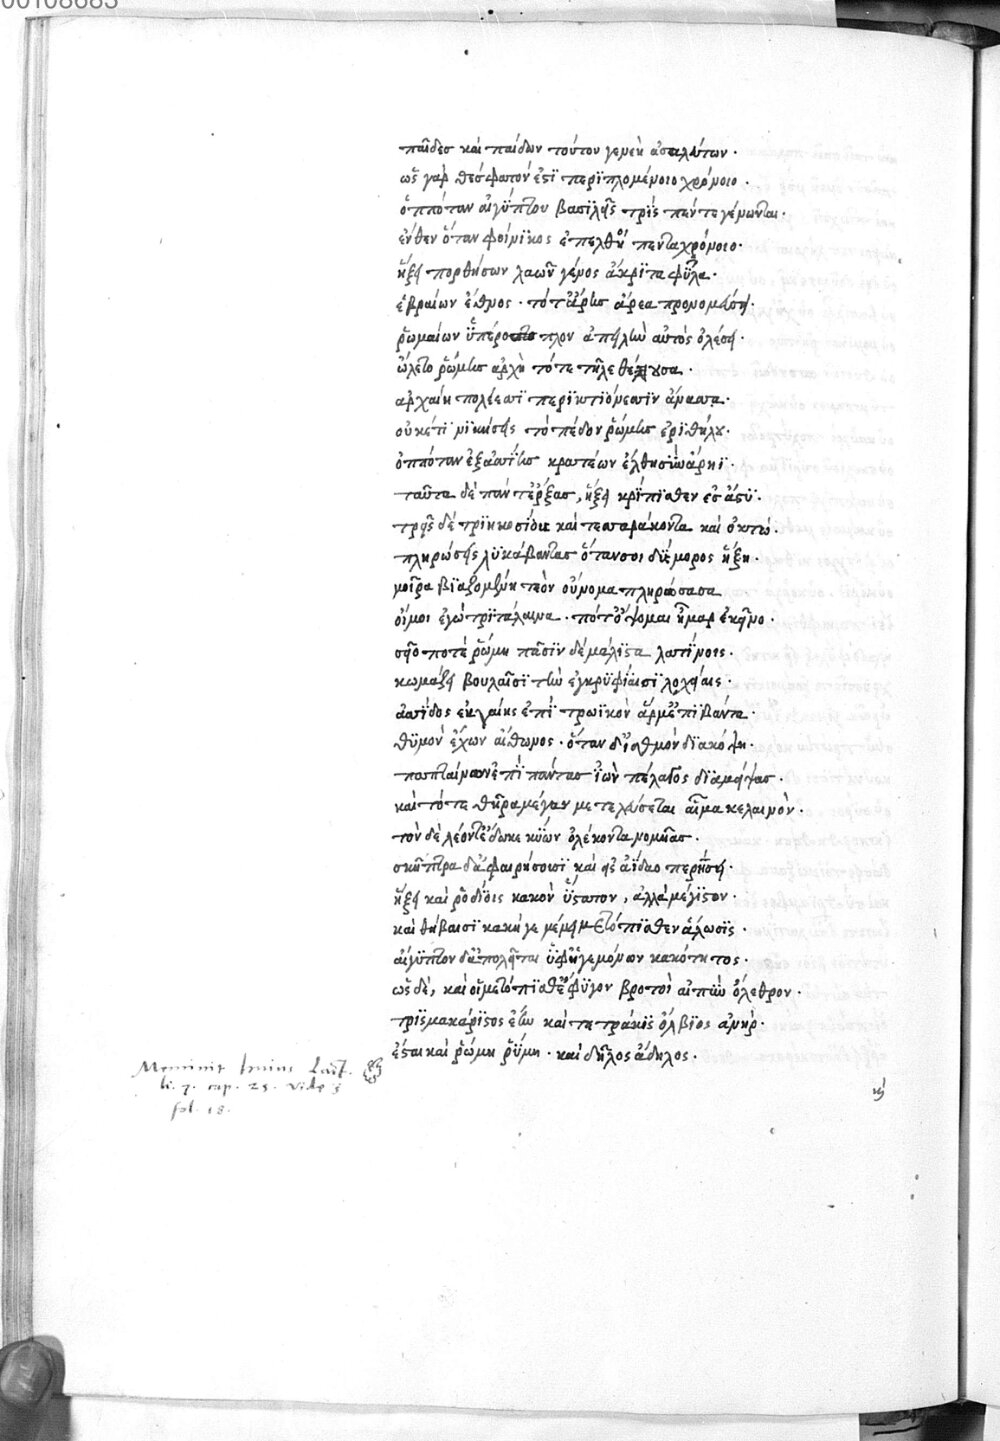 00108683
παῖδες καὶ παίδων τούτου γενεὴ ἀσαλεύτων ·
ὣς γὰρ θέσφατόν ἐστϊ περϊπλομένοιο χρόνοιο ·
ὅππόταν αἰγύπτου βασϊλῆς τρὶς πέντε γένωνται ·
ἔνθεν ὅταν φοίνϊκος ἐπέλθη πενταχρόνοιο ·
ἥξει πορθήσων λαῶν γένος ἄκρϊτα φῦλα ·
ἑβραίων ἔθνος · τότ' ἄρης ἄρεα προνομεύση ·
ῥωμαίων ὑπέρο πλον ἀπειλὴν αὐτὸς ὀλέσει ·
ὤλετο ῥώμης ἀρχὴ τότε τηλεθόωσα ·
ἀρχαίη πολέεσσϊ περϊκτϊόνεσσϊν ἄνασσα ·
οὐκέτϊ νϊκήσεις τὸ πέδον ῥώμης ἐρϊθήλου ·
ὁππόταν ἐξ ἀσίης κρατέων ἔλθη σὺν ἄρηϊ ·
ταῦτα δὲ πάντ' ἔρξας, ἥξει κρϊπϊσθεν ἐς ἄστϋ ·
τρεῖς δὲ τρϊηκοσίοις καὶ τεσσαράκοντα καὶ ὀκτώ ·
πληρώσεις λϋκάβαντας ὅταν σοι δύσμορος ἥξη ·
μοῖρα βϊαζομένη τεὸν οὔνομα πληρώσασα
οἴμοι ἐγὼ τρϊτάλαινα · πότ' ὄψομαι ἦμαρ ἐκεῖνο ·
σεῖο ποτὲ ῥώμη πᾶσϊν δὲ μάλϊστα λατίνοις ·
κωμάζει βουλαῖσϊ τὸν ἐγκρϋφίαισϊ λοχείαις ·
ἀσίδος ἐκ γαίης ἐπὶ τρωϊκὸν ἅρμ' ἐπϊβάντα ·
θϋμὸν ἔχων αἴθωνος · ὅταν δ' ἰσθμὸν δϊακόψη ·
παπταίνων ἐπὶ πάντας ἰὼν πέλαγος δϊαμείψας ·
καὶ τότε θῆρα μέγαν μετελεύσεται αἷμα κελαινὸν ·
τὸν δὲ λέοντ' ἔδωκε κύων ὀλέκοντα νομῆας ·
σκῆπτρα δ' ἀφαιρήσοισϊ καὶ εἰς ἀΐδαο περήσει ·
ἥξει καὶ ῥοδίοις κακὸν ὕστατον, ἀλλὰ μέγϊστον ·
καὶ θήβαισϊ κακή γε μένει μετόπϊσθεν ἅλωσϊς ·
αἴγϋπτον δ' ἀπολεῖται ὑφ' ἡγεμόνων κακότητος ·
ὣς δὲ, καὶ οἳ μετόπϊσθε φύγον βροτοὶ αἰπὺν ὄλεθρον ·
τρϊσμακάρϊστος ἔην καὶ τετράκϊς ὄλβϊος ἀνήρ ·
ἔσται καὶ ῥώμη ῥύμη · καὶ δῆλος ἄδηλος ·
Meminit huius Lact.
li. 7. cap. 25. vide
fol. 18.